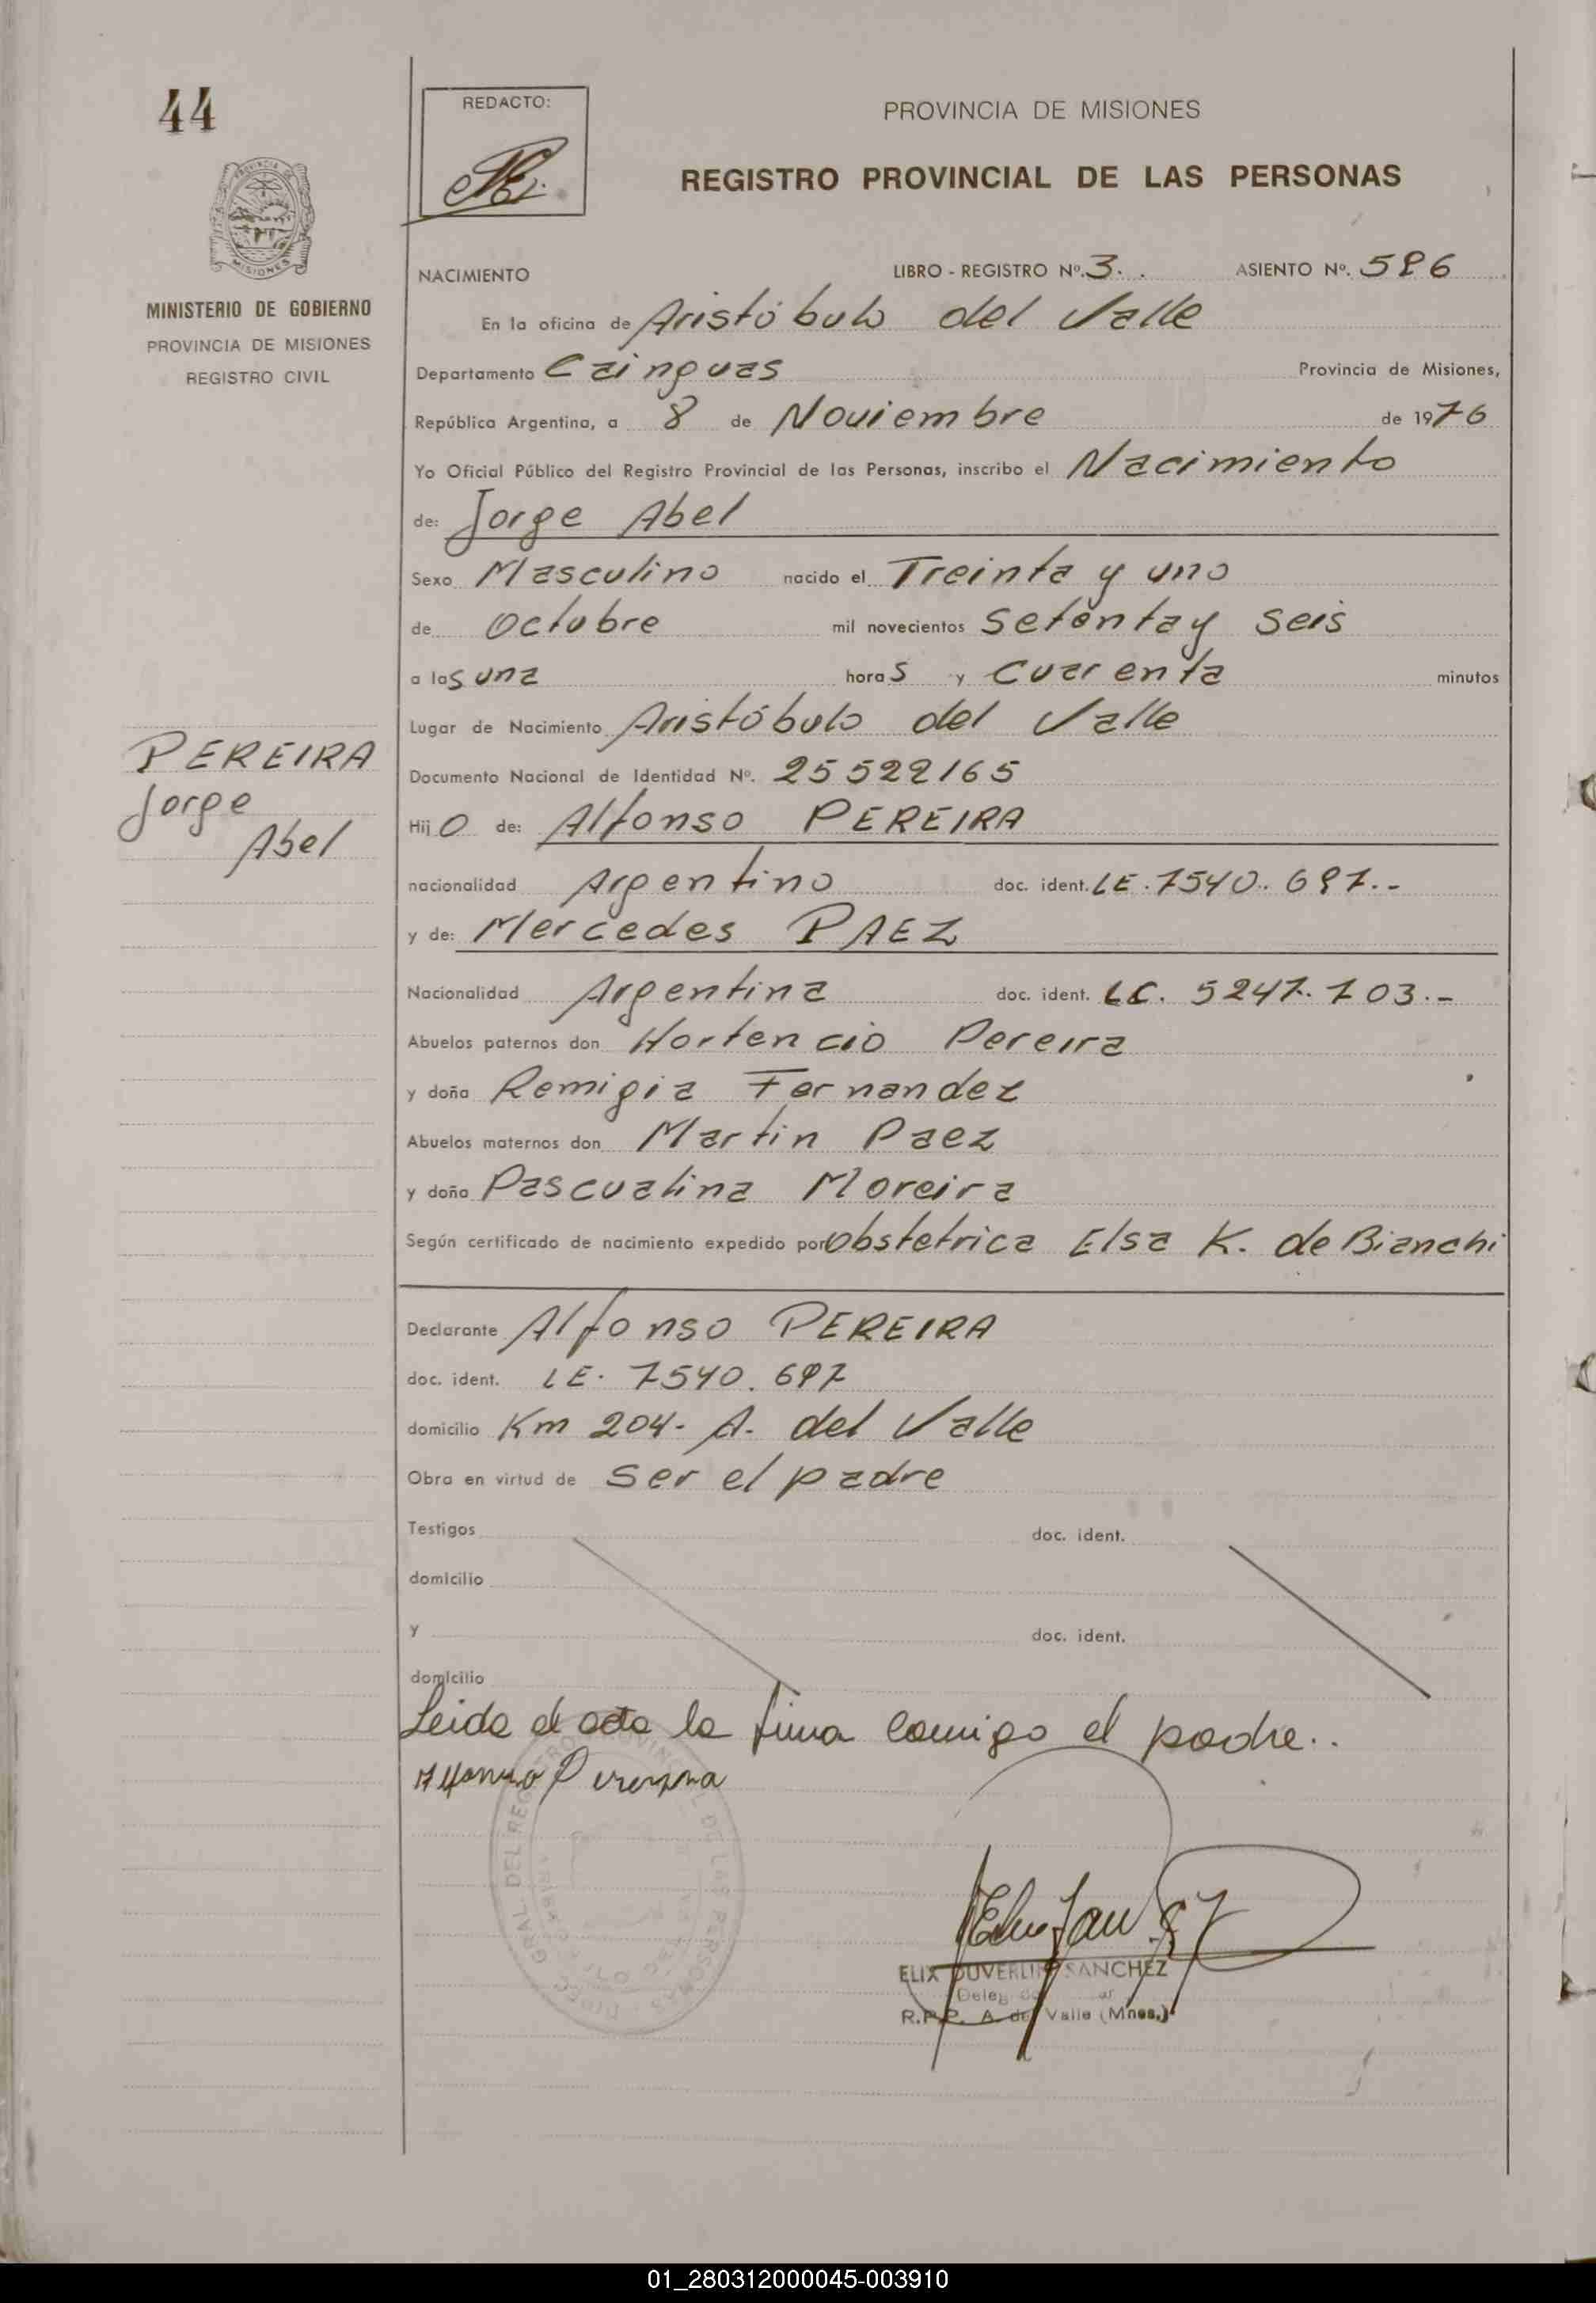 44
REDACTO:
PROVINCIA DE MISIONES
REGISTRO PROVINCIAL DE LAS PERSONAS
MINISTERIO DE GOBIERNO
PROVINCIA DE MISIONES
REGISTRO CIVIL
NACIMIENTO LIBRO - REGISTRO Nº. 3. ASIENTO Nº. 586
En la oficina de Aristóbulo del Valle
Departamento Cainguas Provincia de Misiones,
República Argentina, a 8 de Noviembre de 1976
Yo Oficial Público del Registro Provincial de las Personas, inscribo el Nacimiento
de: Jorge Abel
Sexo Masculino nacido el Treinta y uno
de Octubre mil novecientos Setenta y Seis
a las una horas y Cuarenta minutos
Lugar de Nacimiento Aristóbulo del Valle
PEREIRA
Jorge
Abel
Documento Nacional de Identidad Nº. 25522165
Hijo de: Alfonso PEREIRA
nacionalidad Argentino doc. ident. LE. 7540.697.-
y de: Mercedes PAEZ
Nacionalidad Argentina doc. ident. LC. 5247.703.-
Abuelos paternos don Hortencio Pereira
y doña Remigia Fernandez
Abuelos maternos don Martin Paez
y doña Pascualina Moreira
Según certificado de nacimiento expedido por Obstetrica Elsa K. de Bianchi
Declarante Alfonso PEREIRA
doc. ident. LE. 7540.697
domicilio Km 204- A. del Valle
Obra en virtud de Ser el padre
Testigos doc. ident.
domicilio
y doc. ident.
domicilio
Leida el acta la firma comigo el padre..
Alfonso Pereira
ELIX DUVERLIN SANCHEZ
R.P.P. A. del Valle (Mnes.)
01_280312000045-003910